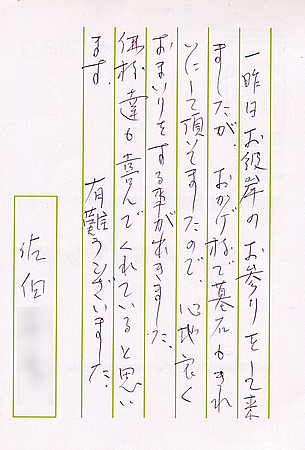 一昨日お彼岸のお参りをして来
ましたが、おかげ様で墓石もきれ
いにして頂いてましたので、心地良く
おまいりをする事が出来ました。
仏様達も喜んでくれていると思い
ます。　有難うございました。
佐伯